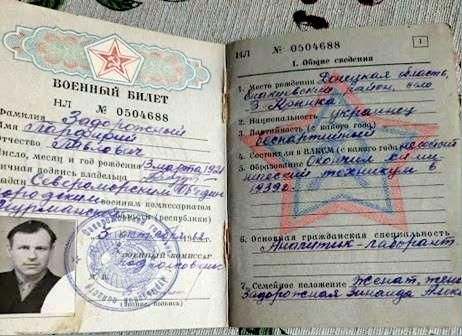 ВОЕННЫЙ БИЛЕТ
НЛ № 0504688
Фамилия Задорожный
Имя
Отчество Павлович
Число, месяц и год рождения 3 марта 1921
Личная подпись владельца
Выдан Североморским объедин
военным комиссариатом
Мурманской области
(республики)
5 октября
ВОЕННЫЙ КОМИССАР
подполковник
НЛ № 0504688
1
I. Общие сведения
1. Место рождения Донецкая область,
район, село
2. Национальность украинец
3. Партийность (с какого года)
беспартийный
4. Состоял ли в ВЛКСМ (с какого года)
5. Образование Окончил хими
ческий техникум в
1939 г.
6. Основная гражданская специальность
Аналитик-лаборант
7. Семейное положение женат, жена
Задорожная Зинаида